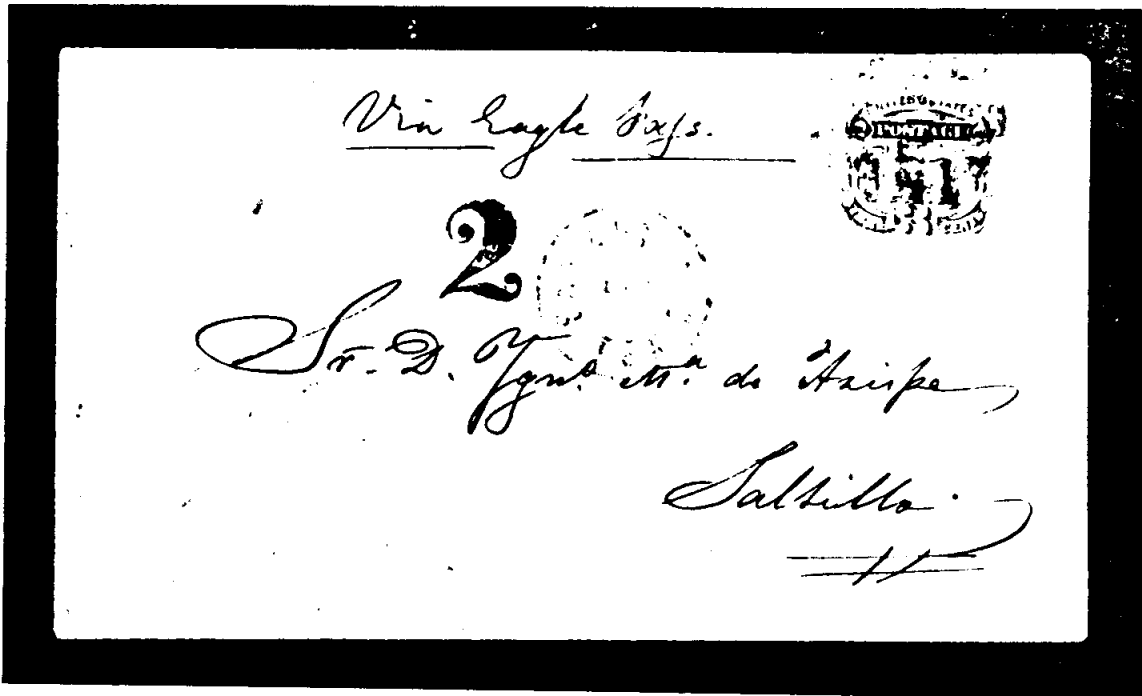 Via Eagle Pass.
UNITED STATES
POSTAGE
2
Sr. D. Ygnº Mª de Azispe
Saltillo.